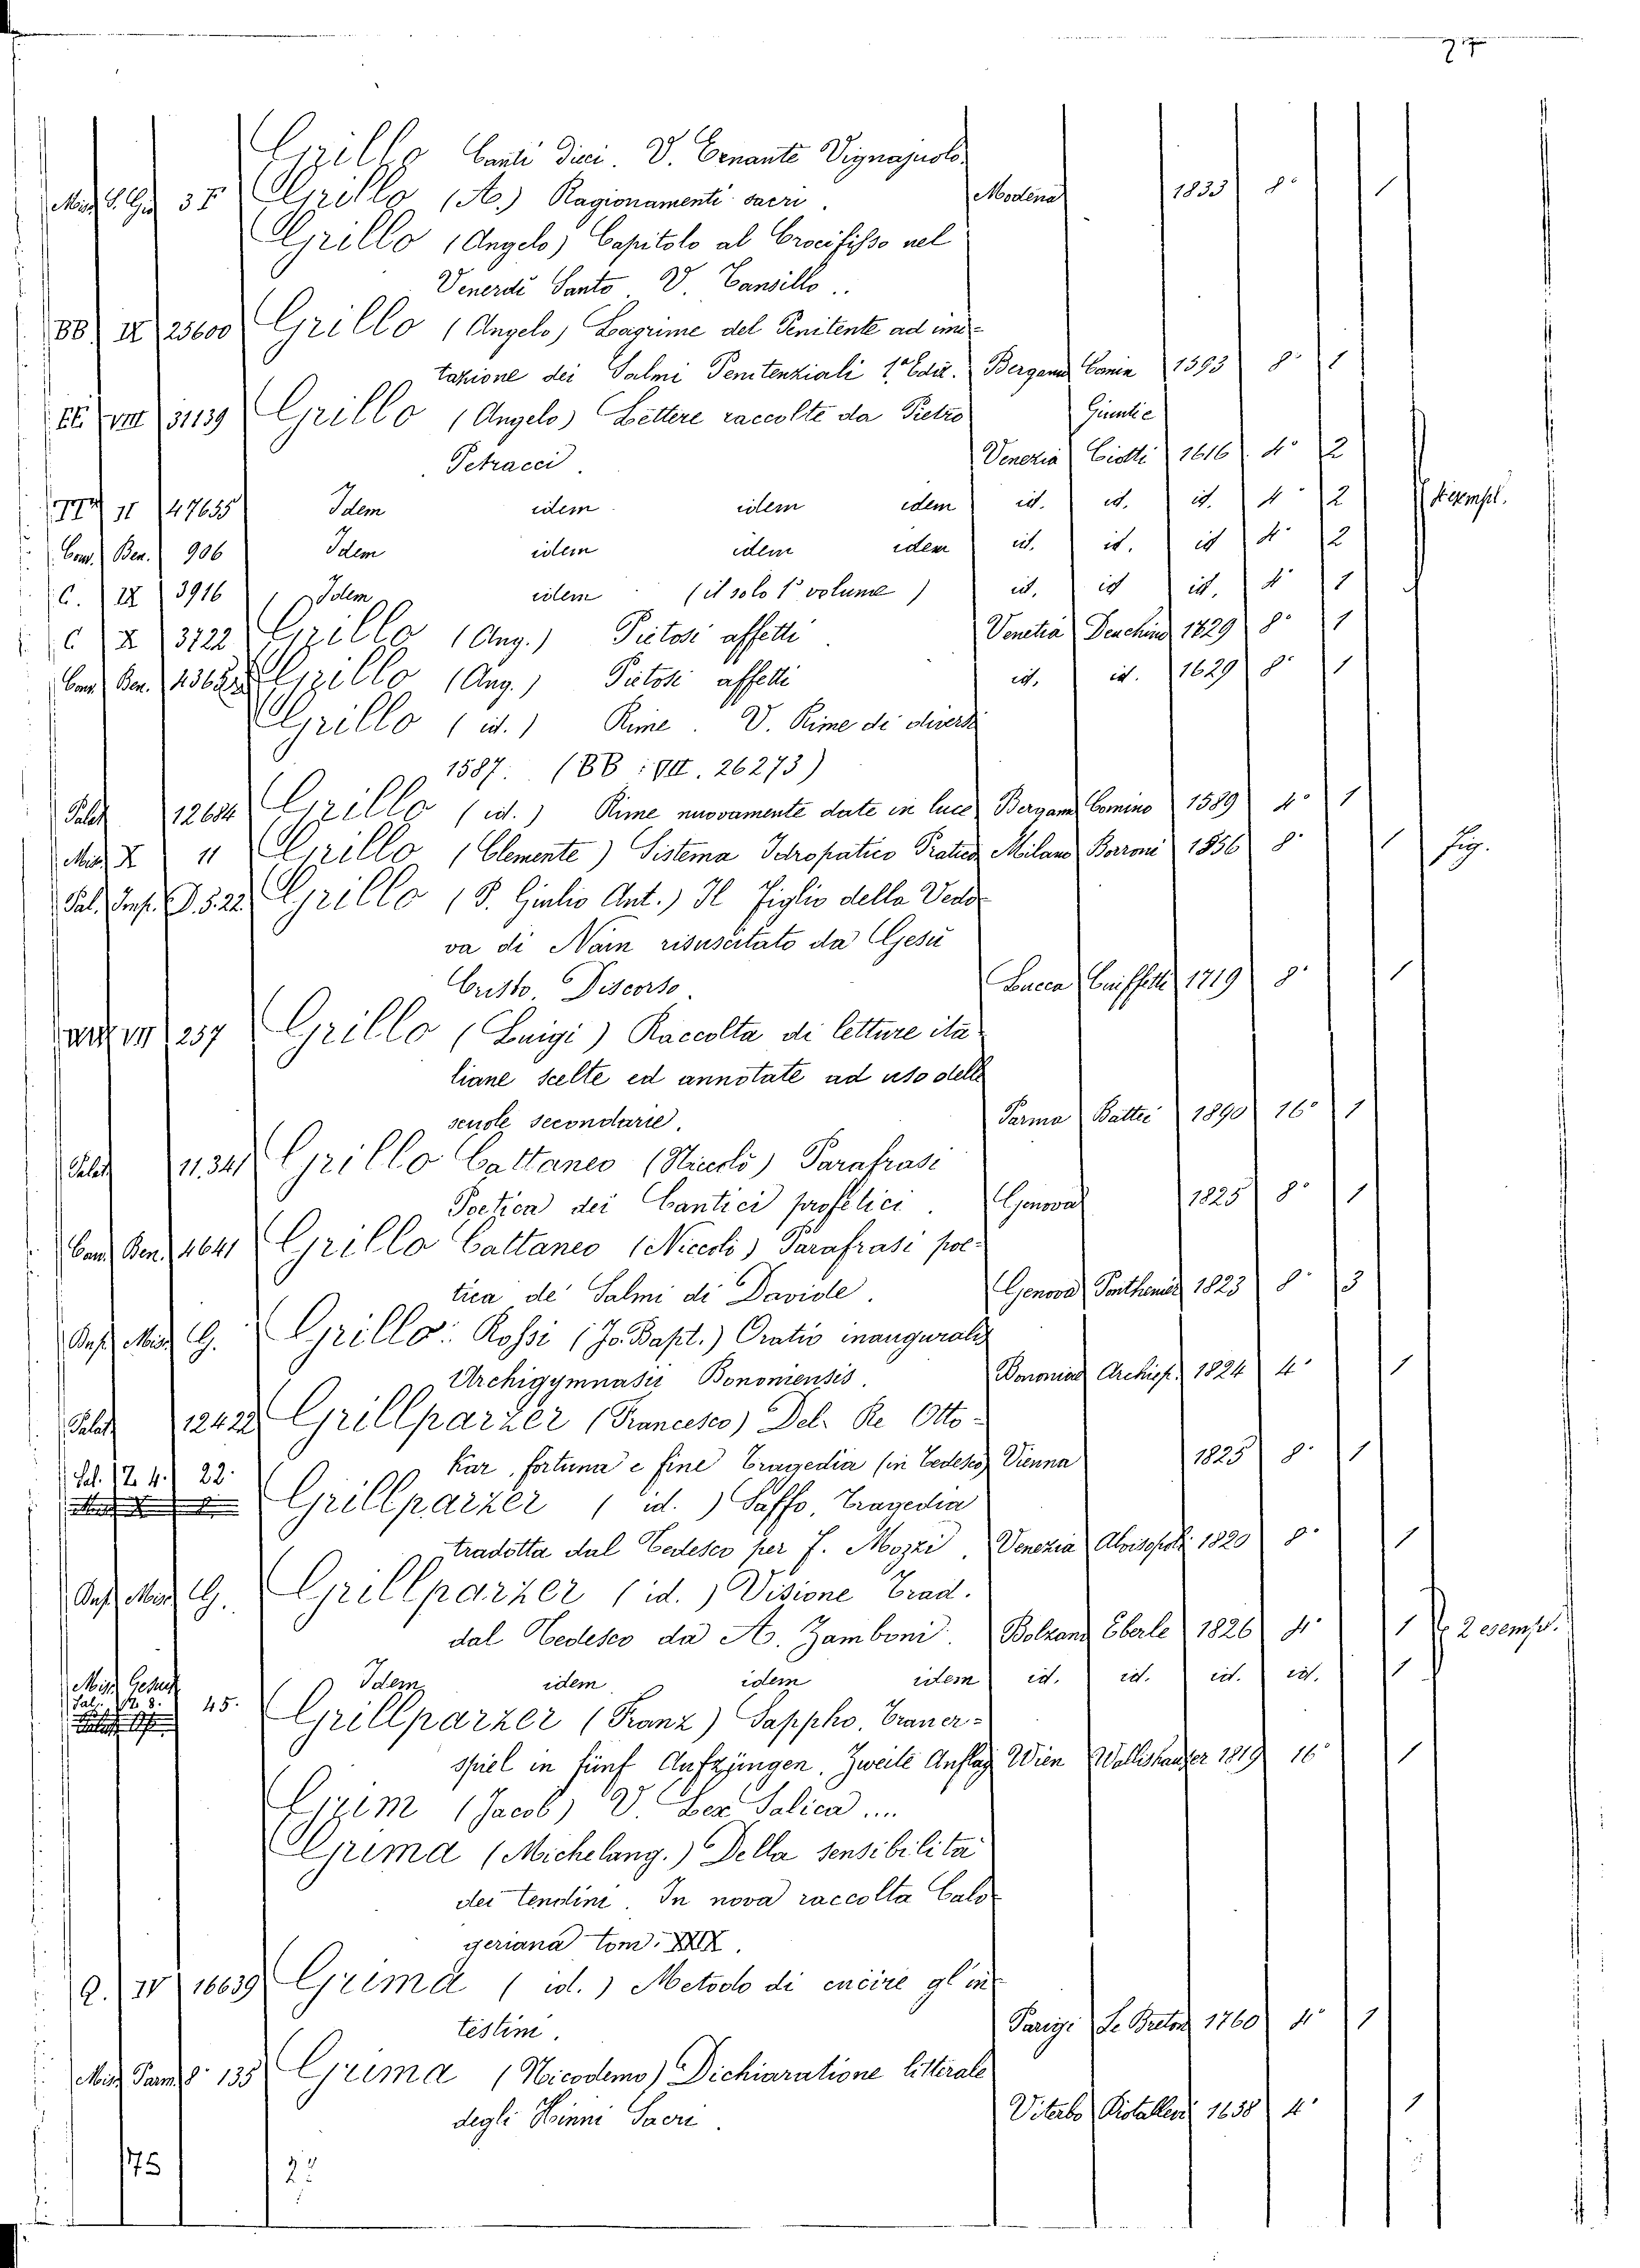 27
Grillo Canti dieci. V. Ernante Vignajuolo.
Misc. 37 Grillo (A.) Ragionamenti sacri. Modena 1833 8° 1
Grillo (Angelo) Capitolo al Crocifisso nel
Venerdì Santo. V. Tansillo..
BB IX 25600 Grillo (Angelo) Lagrime del Penitente ad imi-
tazione dei Salmi Penitenziali 1ª Ediz. Bergamo 1593 8° 1
EE VIII 31139 Grillo (Angelo) Lettere raccolte da Pietro Giunti e
Petracci. Venezia Ciotti 1616 4° 2
II 47655 Idem idem idem idem id. id. id. 4° 2
Conv. Ben. 906 Idem idem idem idem id. id. id 4° 2
C. IX 3916 Idem idem (il solo 1° volume) id. id id. 4° 1
C X 3722 Grillo (Ang.) Pietosi affetti Venetia Deuchino 1829 8° 1
Conv. Ben. Grillo (Ang.) Pietosi affetti id. id. 1629 8° 1
Grillo (id.) Rime. V. Rime di diversi
1587. (BB: VII. 26273)
Palat 12684 Grillo (id.) Rime nuovamente date in luce Bergamo Comino 1589 4° 1
Misc. X 11 Grillo (Clemente) Sistema Idropatico Pratico Milano Borroni 1856 8° 1 fig.
Pal. Imp. D. 5.22. Grillo (P. Giulio Ant.) Il Figlio della Vedo-
va di Nain risuscitato da Gesù
Cristo. Discorso. Lucca 1719 8° 1
VII 257 Grillo (Luigi) Raccolta di letture ita-
liane scelte ed annotate ad uso delle
scuole secondarie. Parma Battei 1890 16° 1
Palat 11.341 Grillo Cattaneo (Niccolò) Parafrasi
Poetica dei Cantici profetici. Genova 1825 8° 1
Conv. Ben. 4641 Grillo Cattaneo (Niccolò) Parafrasi poe-
tica de' Salmi di Davide. Genova Ponthenier 1823 8° 3
Misc. G. Grillo: Rossi (Jo. Bapt.) Oratio inauguralis
Archigymnasii Bononiensis. Bononiae Archiep. 1824 4° 1
Palat 12422 Grillparzer (Francesco) Del Re Otto-
kar, fortuna e fine Tragedia (in Tedesco) Vienna 1825 8° 1
Sal. Z. 4. 22. Grillparzer (id.) Saffo, Tragedia
tradotta dal Tedesco per F. Mozzi. Venezia Alvisopoli 1820 8° 1
Misc. G. Grillparzer (id.) Visione Trad.
dal Tedesco da A. Zamboni. Bolzano Eberle 1826 4° 1 2 esempl.
Misc. Gesuit Idem idem idem idem id. id. id. id. 1
Sal. 45. Grillparzer (Franz) Sappho. Trauer-
spiel in fünf Aufzüngen. Zweite Auflag Wien Wallishauser 1819 16° 1
Grim (Jacob) V. Lex Salica ....
Grima (Michelang.) Della sensibilità
dei tendini. In nova raccolta Calo-
geriana tom. XXIX.
Q. IV 16639 Grima (id.) Metodo di cucire gl'in-
testini. Parigi Le Breton 1760 4° 1
Misc. Parm. 8° 135 Grima (Nicodemo) Dichiaratione litterale
degli Hinni Sacri. Viterbo 1638 4° 1
175